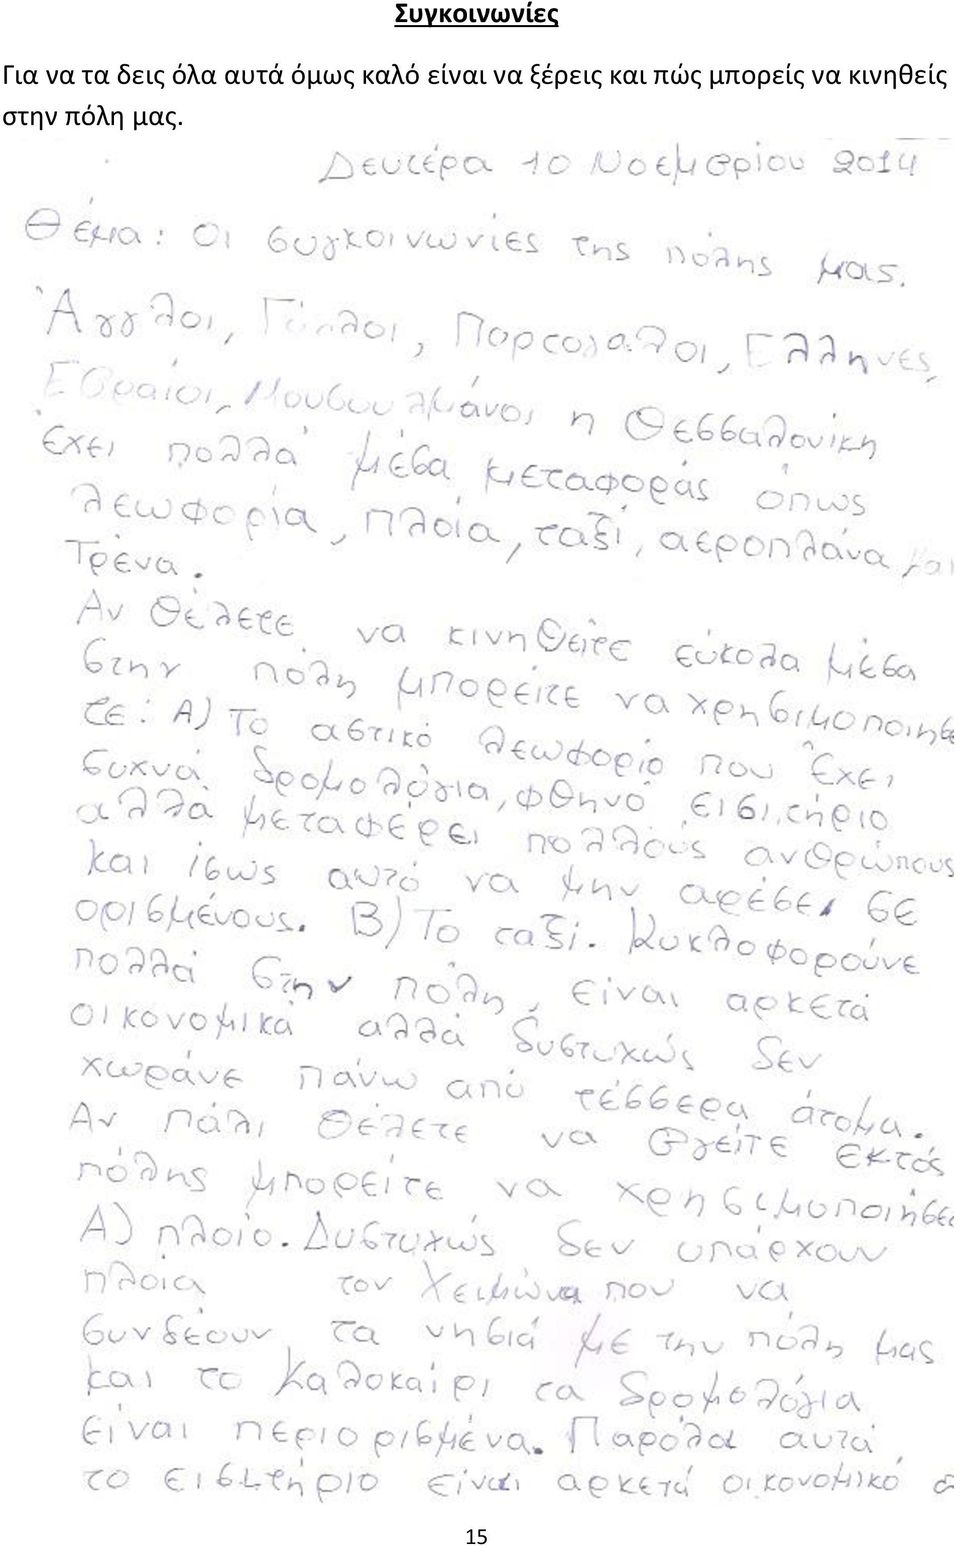 Συγκοινωνίες
Για να τα δεις όλα αυτά όμως καλό είναι να ξέρεις και πώς μπορείς να κινηθείς
στην πόλη μας.
Δευτέρα 10 Νοεμβρίου 2014
Θέμα: Οι συγκοινωνίες της πόλης μας.
Άγγλοι, Γάλλοι, Πορτογάλοι, Έλληνες,
Εβραίοι, Μουσουλμάνοι η Θεσσαλονίκη
έχει πολλά μέσα μεταφοράς όπως
λεωφορία, πλοία, ταξί, αεροπλάνα και
Τρένα.
Αν θέλετε να κινηθείτε εύκολα μέσα
στην πόλη μπορείτε να χρησιμοποιήσε
τε: Α) Το αστικό λεωφορίο που έχει
συχνά δρομολόγια, φθηνό εισιτήριο
αλλά μεταφέρει πολλούς ανθρώπους
και ίσως αυτό να μην αρέσει σε
ορισμένους. Β) Το ταξί. Κυκλοφορούνε
πολλά στην πόλη, είναι αρκετά
οικονομικά αλλά δυστυχώς δεν
χωράνε πάνω από τέσσερα άτομα.
Αν πάλι θέλετε να βγείτε εκτός
πόλης μπορείτε να χρησιμοποιήσε
Α) πλοίο. Δυστυχώς δεν υπάρχουν
πλοία τον Χειμώνα που να
συνδέουν τα νησιά με την πόλη μας
και το καλοκαίρι τα δρομολόγια
είναι περιορισμένα. Παρόλα αυτά
το εισιτήριο είναι αρκετά οικονομικό
15